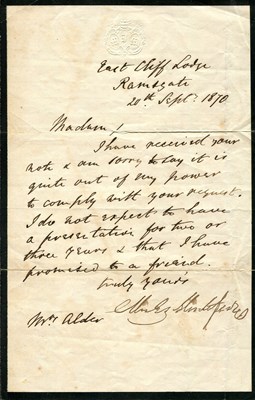 East Cliff Lodge
Ramsgate
20th Sept. 1870
Madam!
I have received your
note & am sorry to say it is
quite out of my power
to comply with your request.
I do not expect to have
a presentation for two or
three years & that I have
promised to a friend.
truly yours
Mrs Alder